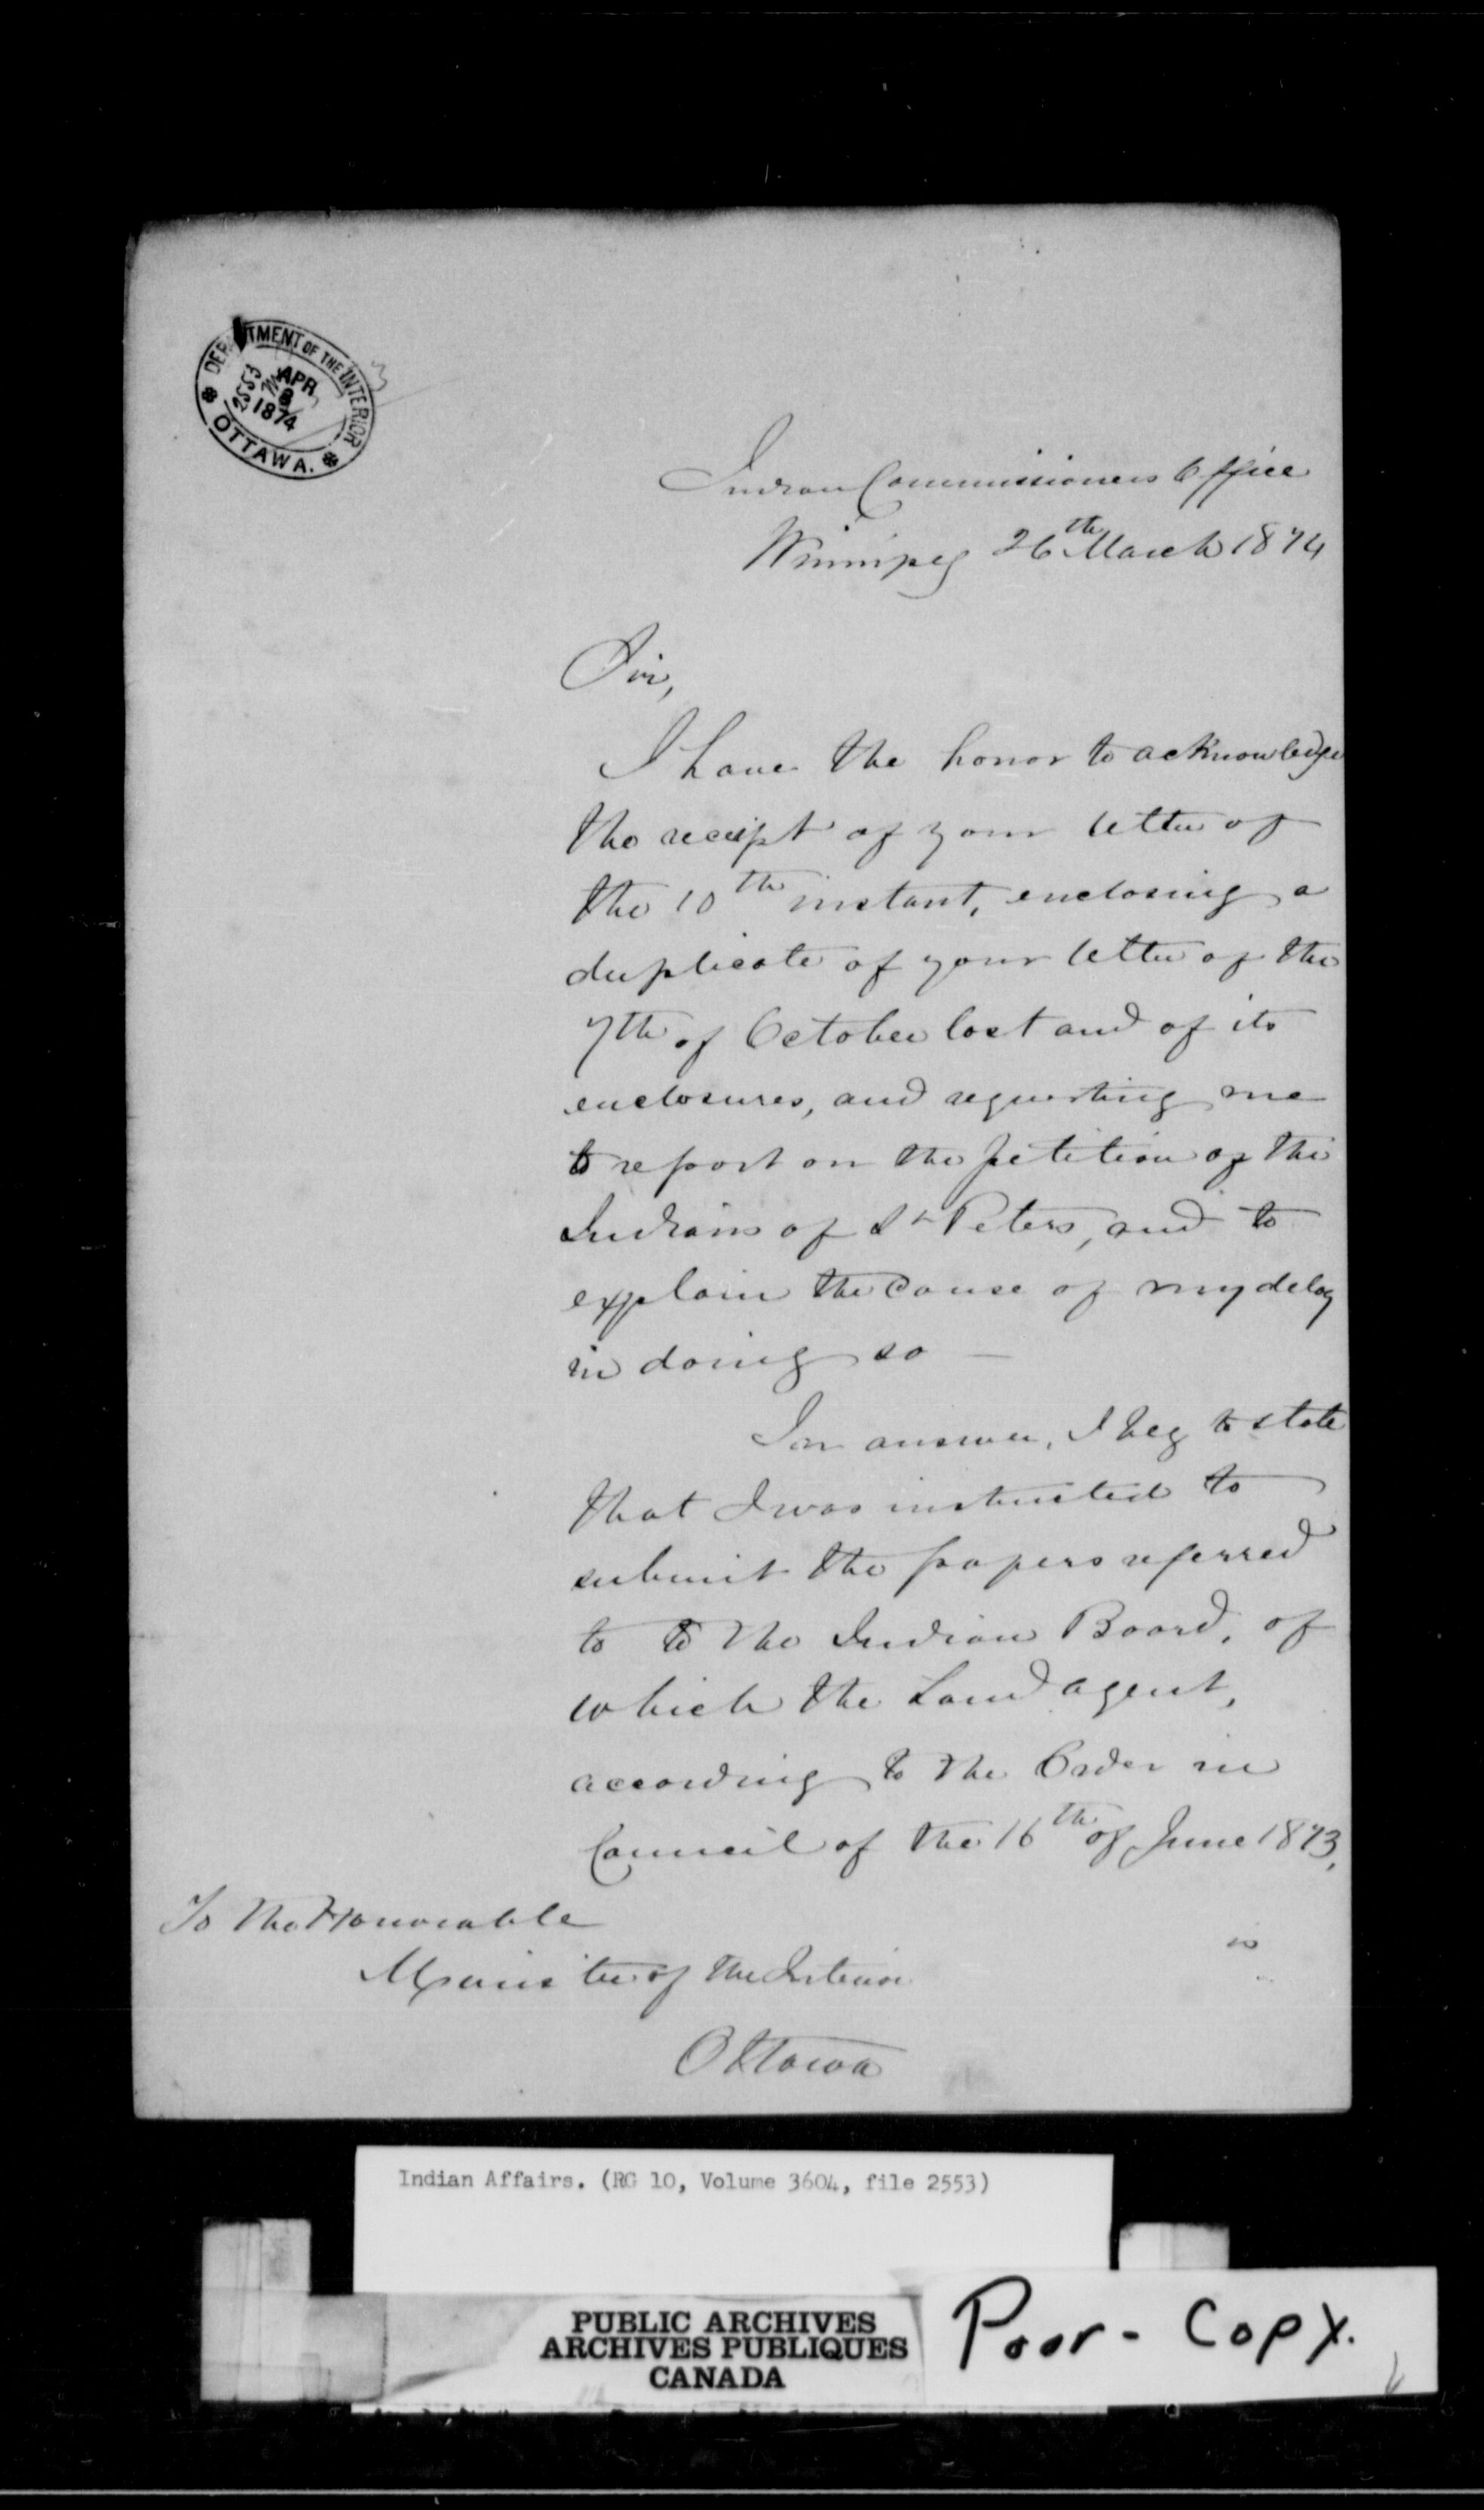 DEPARTMENT OF THE INTERIOR
2553
APR
8
1874
OTTAWA.
Indian Commissioners Office
Winnipeg 26th March 1874
Sir,
I have the honor to acknowledge
the receipt of your letter of
the 10th instant, enclosing a
duplicate of your letter of the
7th of October last and of its
enclosures, and requesting me
to report on the petition of the
Indians of St Peters, and to
explain the cause of my delay
in doing so —
In answer, I beg to state
that I was instructed to
submit the papers referred
to to the Indian Board, of
which the Land agent,
according to the Order in
Council of the 16th of June 1873,
is
To the Honorable
Minister of the Interior
Ottawa
Indian Affairs. (RG 10, Volume 3604, file 2553)
PUBLIC ARCHIVES
ARCHIVES PUBLIQUES
CANADA
Poor - Copy.